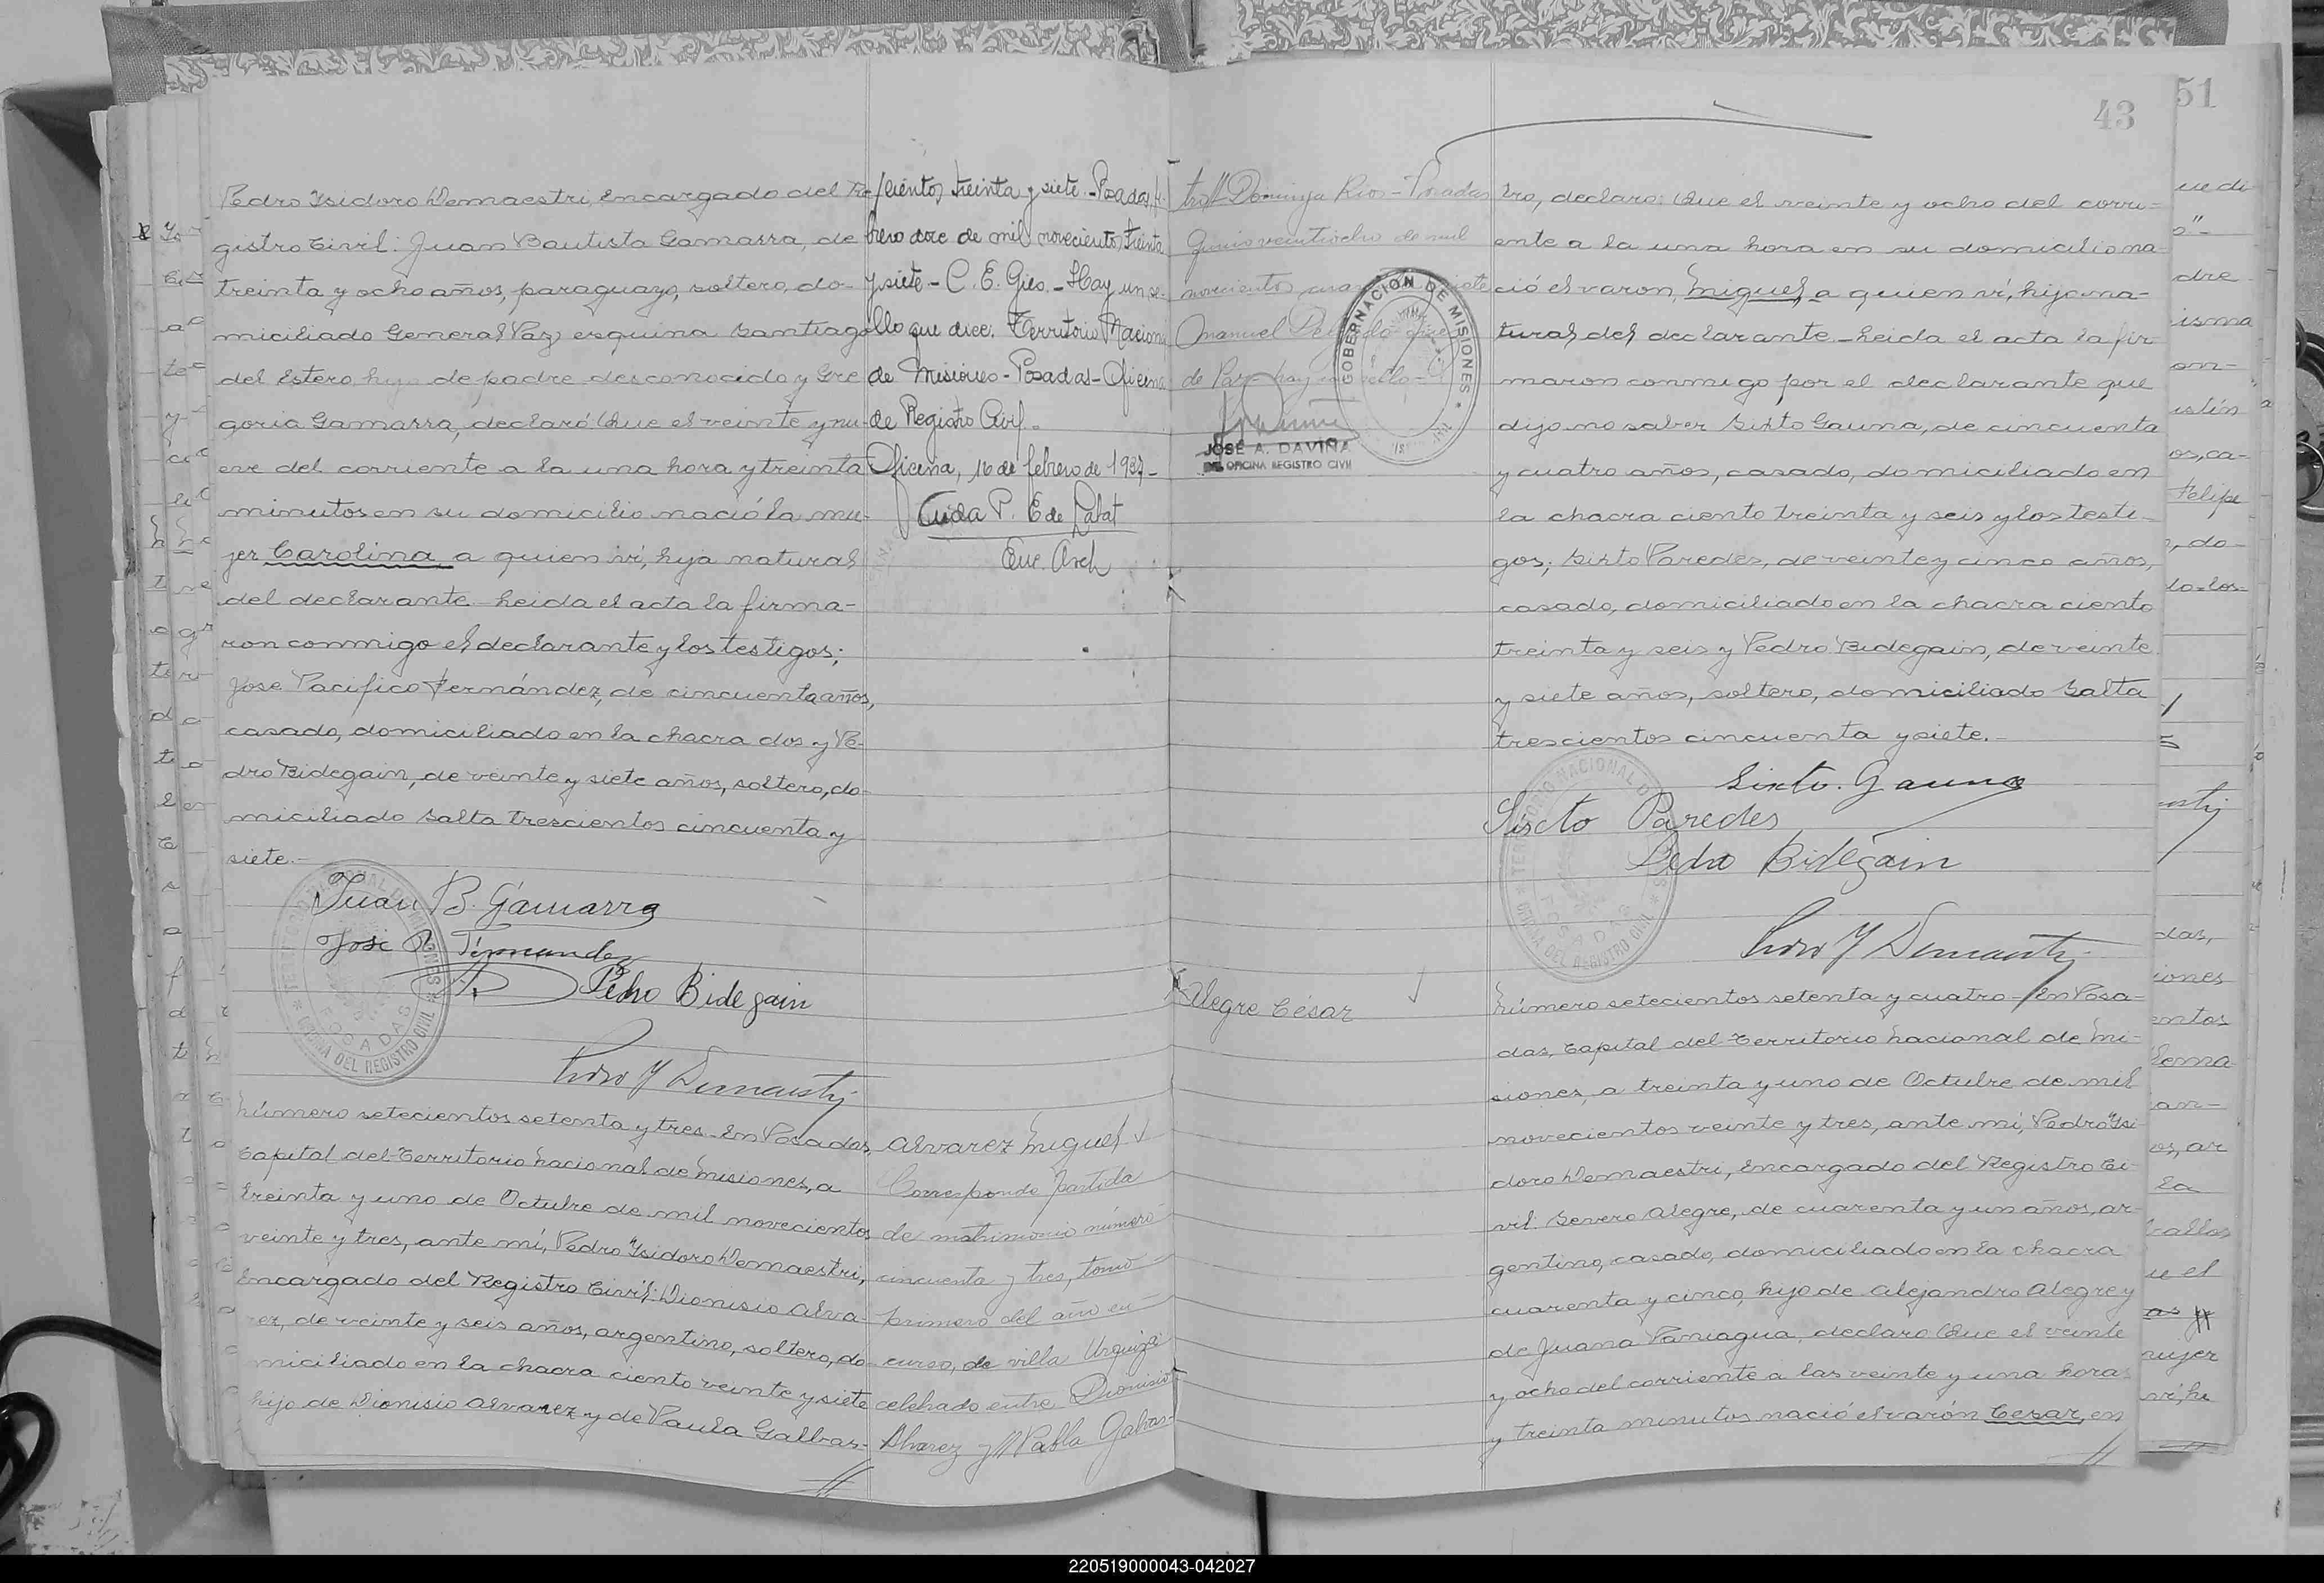 Pedro Ysidoro Demaestri, Encargado del Re-
gistro Civil: Juan Bautista Gamarra, de
treinta y ocho años, paraguayo, soltero, do-
miciliado General Paz esquina Santiago
del Estero hijo de padre desconocido y Gre
goria Gamarra, declaró: Que el veinte y nu-
eve del corriente a la una hora y treinta
minutos en su domicilio nació la mu-
jer Carolina a quien ví, hija natural
del declarante. Leida el acta la firma-
ron conmigo el declarante y los testigos;
José Pacifico Fernández, de cincuenta años,
casado, domiciliado en la chacra dos y Pe-
dro Bidegain, de veinte y siete años, soltero, do-
miciliado Salta trescientos cincuenta y
siete.-
Juan B. Gamarra
José P. Fernandez
Pedro Bidegain
Pedro Y Demaestri
Número setecientos setenta y tres. En Posadas,
Capital del Territorio Nacional de Misiones, a
treinta y uno de Octubre de mil novecientos
veinte y tres, ante mí, Pedro Ysidoro Demaestri,
Encargado del Registro Civil: Dionisio Alva-
rez, de veinte y seis años, argentino, soltero, do-
miciliado en la chacra ciento veinte y siete
hijo de Dionisio Alvarez y de Paula Galbas-
cientos treinta y siete.-Posadas, fe-
brero doce de mil novecientos treinta
y siete - C. E. Gies.- Hay un se-
llo que dice: Territorio Nacional
de Misiones - Posadas - Oficina
de Registro Civil.
Oficina, 16 de febrero de 1937-
Enc. Arch
Alvarez Miguel
Corresponde partida
de matrimonio número
cincuenta y tres, tomo
primero del año en
curso, de villa Urquiza
celebrado entre Dionisio
Alvarez y Pabla Galvas-
43
51
tro Dominga Rios - Posadas
Junio veintiocho de mil
novecientos
Manuel
de Paz - hay un sello -
GOBERNACIÓN DE MISIONES
JOSÉ A. DAVIÑA
OFICINA REGISTRO CIVIL
tro, declaro: Que el veinte y ocho del corri-
ente a la una hora en su domicilio na-
ció el varon, Miguel, a quien ví, hijo na-
tural del declarante.-Leida el acta la fir-
maron conmigo por el declarante que
dijo no saber Sixto Gauna, de cincuenta
y cuatro años, casado, domiciliado en
la chacra ciento treinta y seis y los testi-
gos; Sixto Paredes, de veinte y cinco años,
casado, domiciliado en la chacra ciento
treinta y seis y Pedro Bidegain, de veinte
y siete años, soltero, domiciliado Salta
trescientos cincuenta y siete.-
Sixto. Gauna
Sixto Paredes
Pedro Bidegain
Pedro Y Demaestri
TERRITORIO NACIONAL DE MISIONES
POSADAS
OFICINA DEL REGISTRO CIVIL
Alegre César
Número setecientos setenta y cuatro - En Posa-
das, Capital del Territorio Nacional de Mi-
siones, a treinta y uno de Octubre de mil
novecientos veinte y tres, ante mí, Pedro Ysi-
doro Demaestri, Encargado del Registro Ci-
vil: Severo Alegre, de cuarenta y un años, ar-
gentino, casado, domiciliado en la chacra
cuarenta y cinco, hijo de Alejandro Alegre y
de Juana Paniagua, declaro: Que el veinte
y ocho del corriente a las veinte y una horas
y treinta minutos nació el varón Cesar, en
220519000043-042027